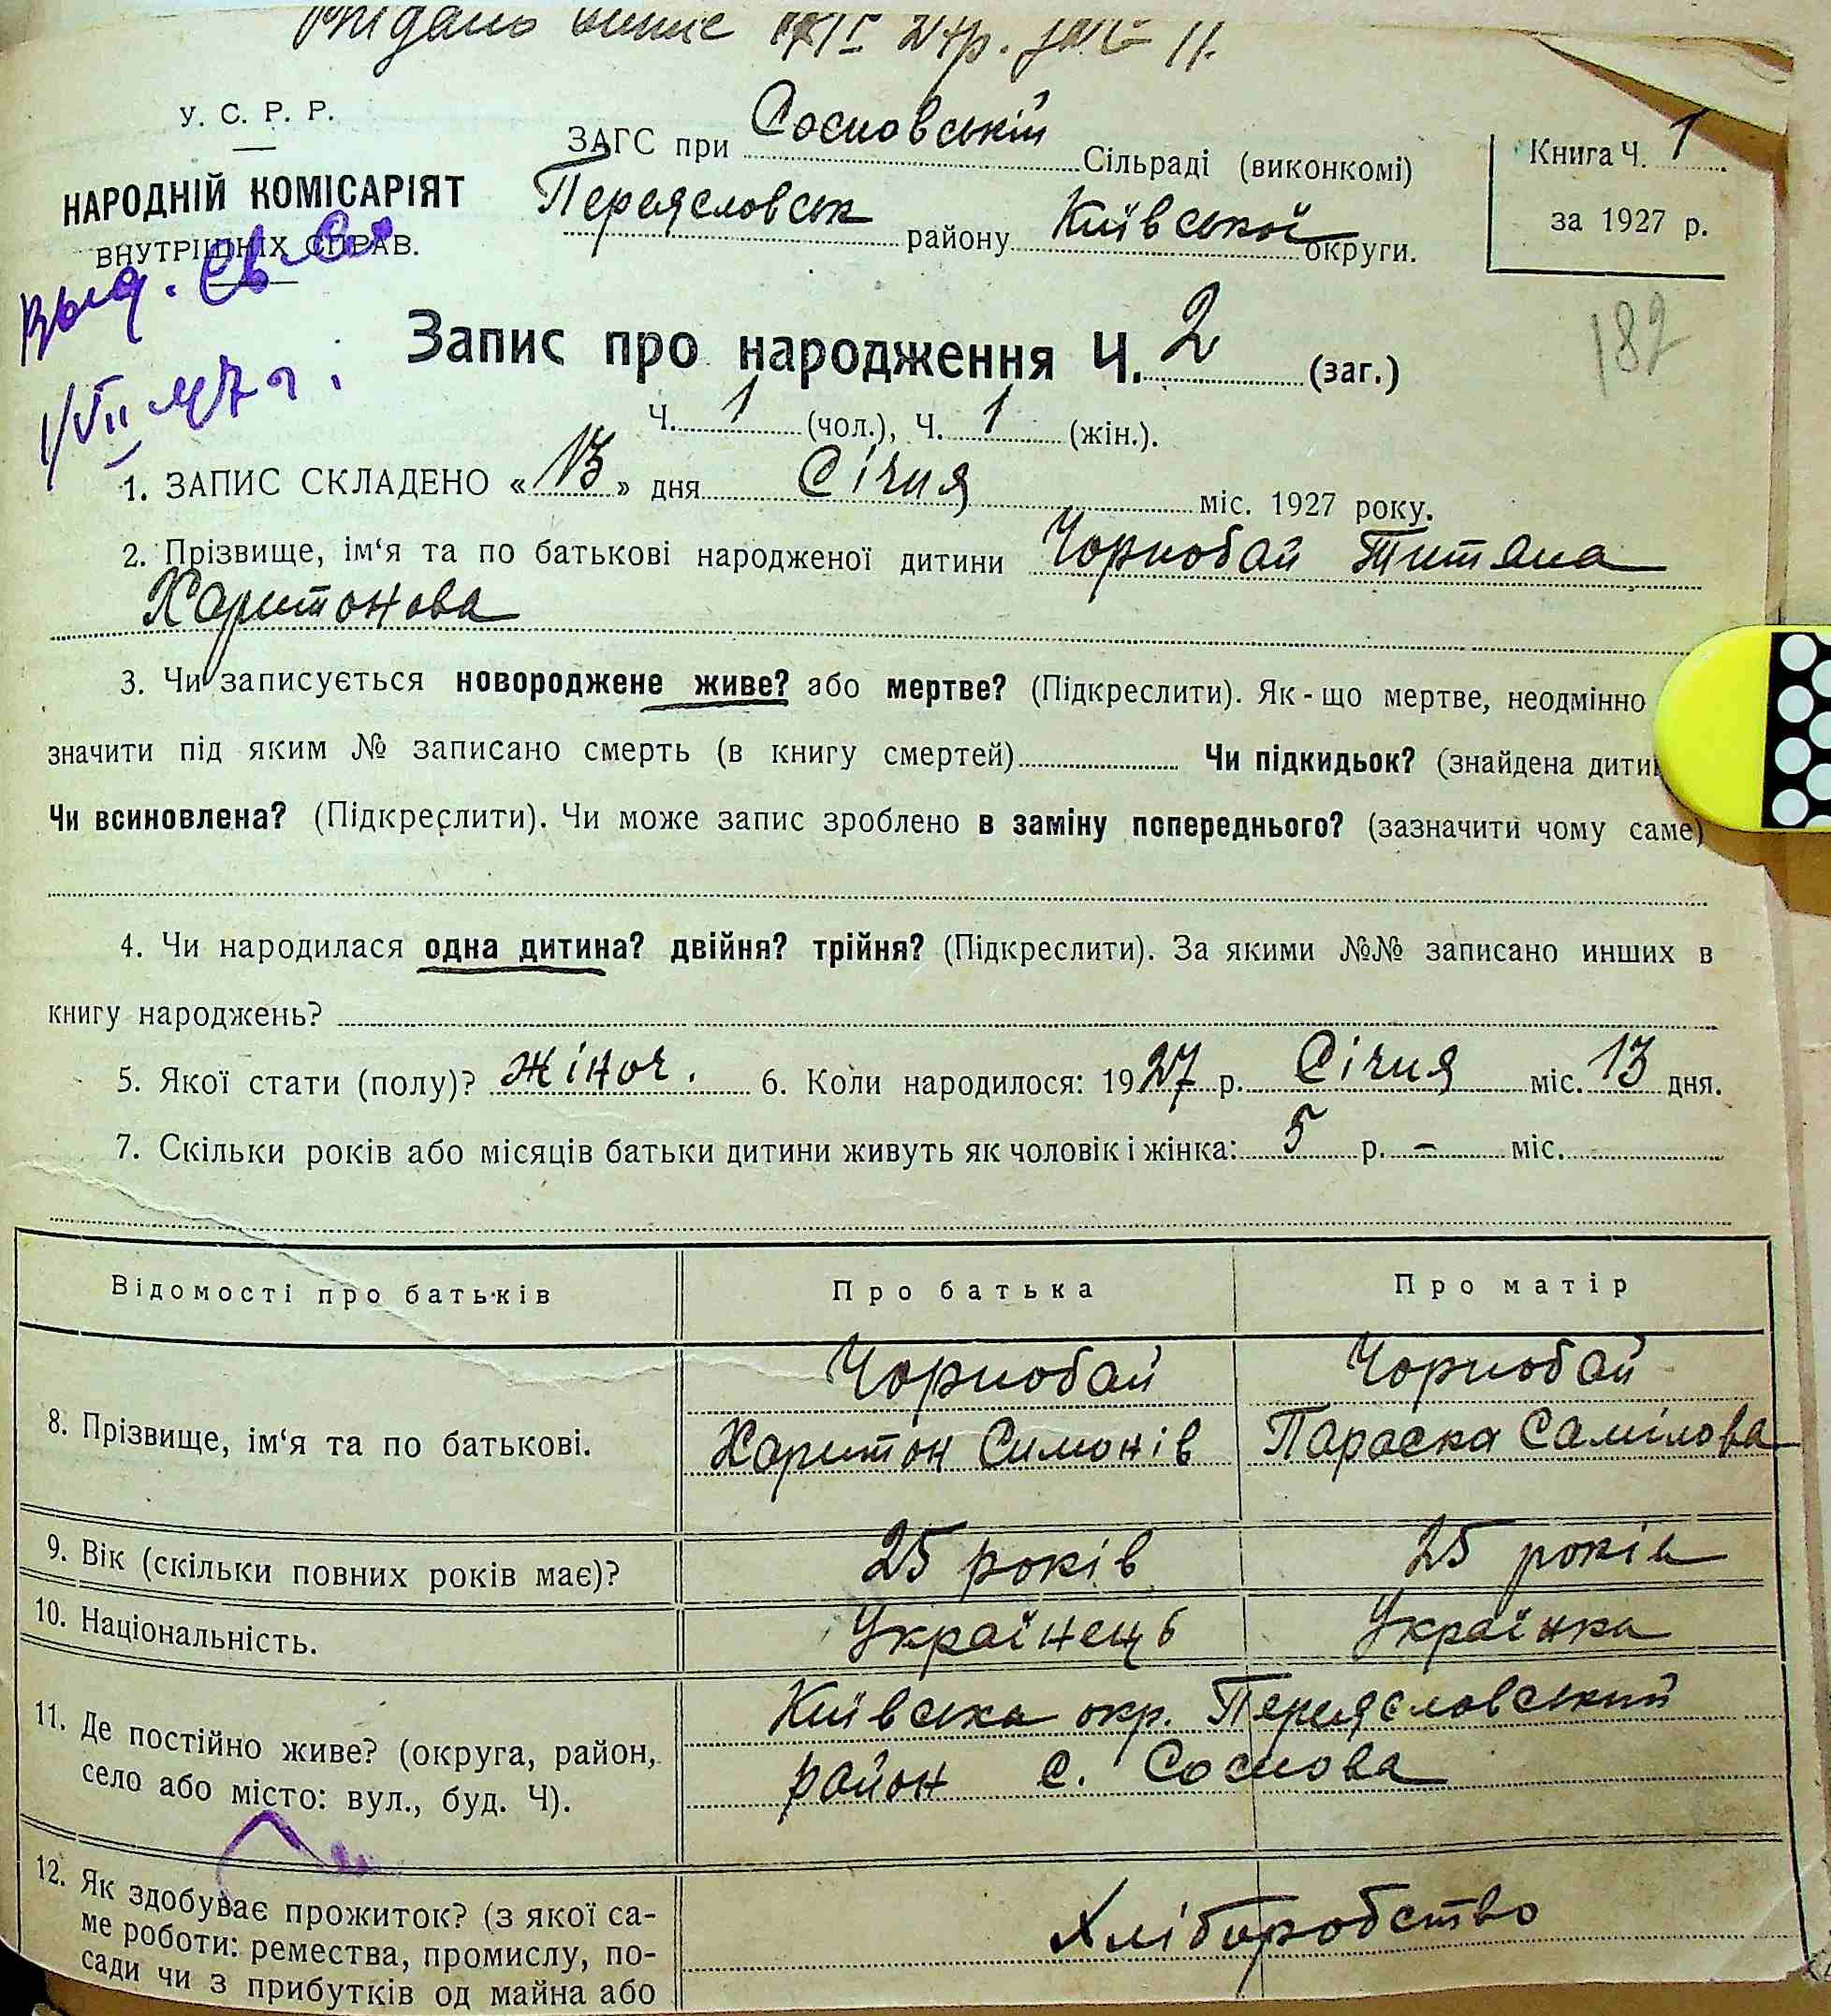 Видано випис
У. С. Р. Р.
НАРОДНІЙ КОМІСАРІЯТ
ВНУТРІШНІХ СПРАВ.
ЗАГС при Сосновській Сільраді (виконкомі)
Переясловськ району Київської округи.
Книга Ч. 1
за 1927 р.
Выд. св-во
1/VII 47 г.
182
Запис про народження Ч. 2 (заг.)
Ч. 1 (чол.), Ч. 1 (жін.).
1. ЗАПИС СКЛАДЕНО «13» дня Січня міс. 1927 року.
2. Прізвище, ім‘я та по батькові народженої дитини Чорнобай Титяна
Харитонова
3. Чи записується новороджене живе? або мертве? (Підкреслити). Як-що мертве, неодмінно
значити під яким № записано смерть (в книгу смертей) Чи підкидьок? (знайдена дити
Чи всиновлена? (Підкреслити). Чи може запис зроблено в заміну попереднього? (зазначити чому саме)
4. Чи народилася одна дитина? двійня? трійня? (Підкреслити). За якими №№ записано инших в
книгу народжень?
5. Якої стати (полу)? Жіноч. 6. Коли народилося: 1927 р. Січня міс. 13 дня.
7. Скільки років або місяців батьки дитини живуть як чоловік і жінка: 5 р. – міс.
Відомості про батьків Про батька Про матір
8. Прізвище, ім‘я та по батькові.
Чорнобай
Харитон Симонів
Чорнобай
Параска Самілова
9. Вік (скільки повних років має)? 25 років 25 років
10. Національність. Українець Українка
11. Де постійно живе? (округа, район,
село або місто: вул., буд. Ч).
Київська окр. Переясловський
район с. Соснова
12. Як здобуває прожиток? (з якої са-
ме роботи: ремества, промислу, по-
сади чи з прибутків од майна або
Хліборобство